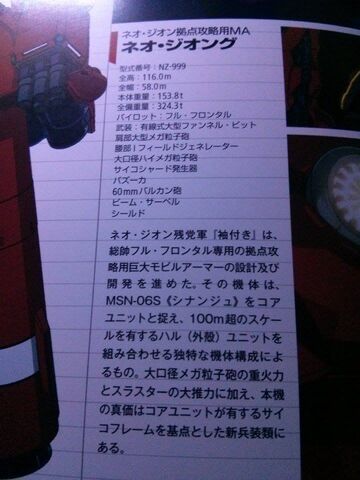 ネオ・ジオン拠点攻略用MA
ネオ・ジオング
型式番号：NZ-999
全高：116.0m
全幅：58.0m
本体重量：153.8t
全備重量：324.3t
パイロット：フル・フロンタル
武装：有線式大型ファンネル・ビット
肩部大型メガ粒子砲
腰部Iフィールドジェネレーター
大口径ハイメガ粒子砲
サイコシャード発生器
バズーカ
60mmバルカン砲
ビーム・サーベル
シールド
ネオ・ジオン残党軍『袖付き』は、
総帥フル・フロンタル専用の拠点攻
略用巨大モビルアーマーの設計及び
開発を進めた。その機体は、
MSN-06S《シナンジュ》をコア
ユニットと捉え、100m超のスケー
ルを有するハル（外殻）ユニットを
組み合わせる独特な機体構成によ
るもの。大口径メガ粒子砲の重火力
とスラスターの大推力に加え、本機
の真価はコアユニットが有するサイ
コフレームを基点とした新兵装類に
ある。